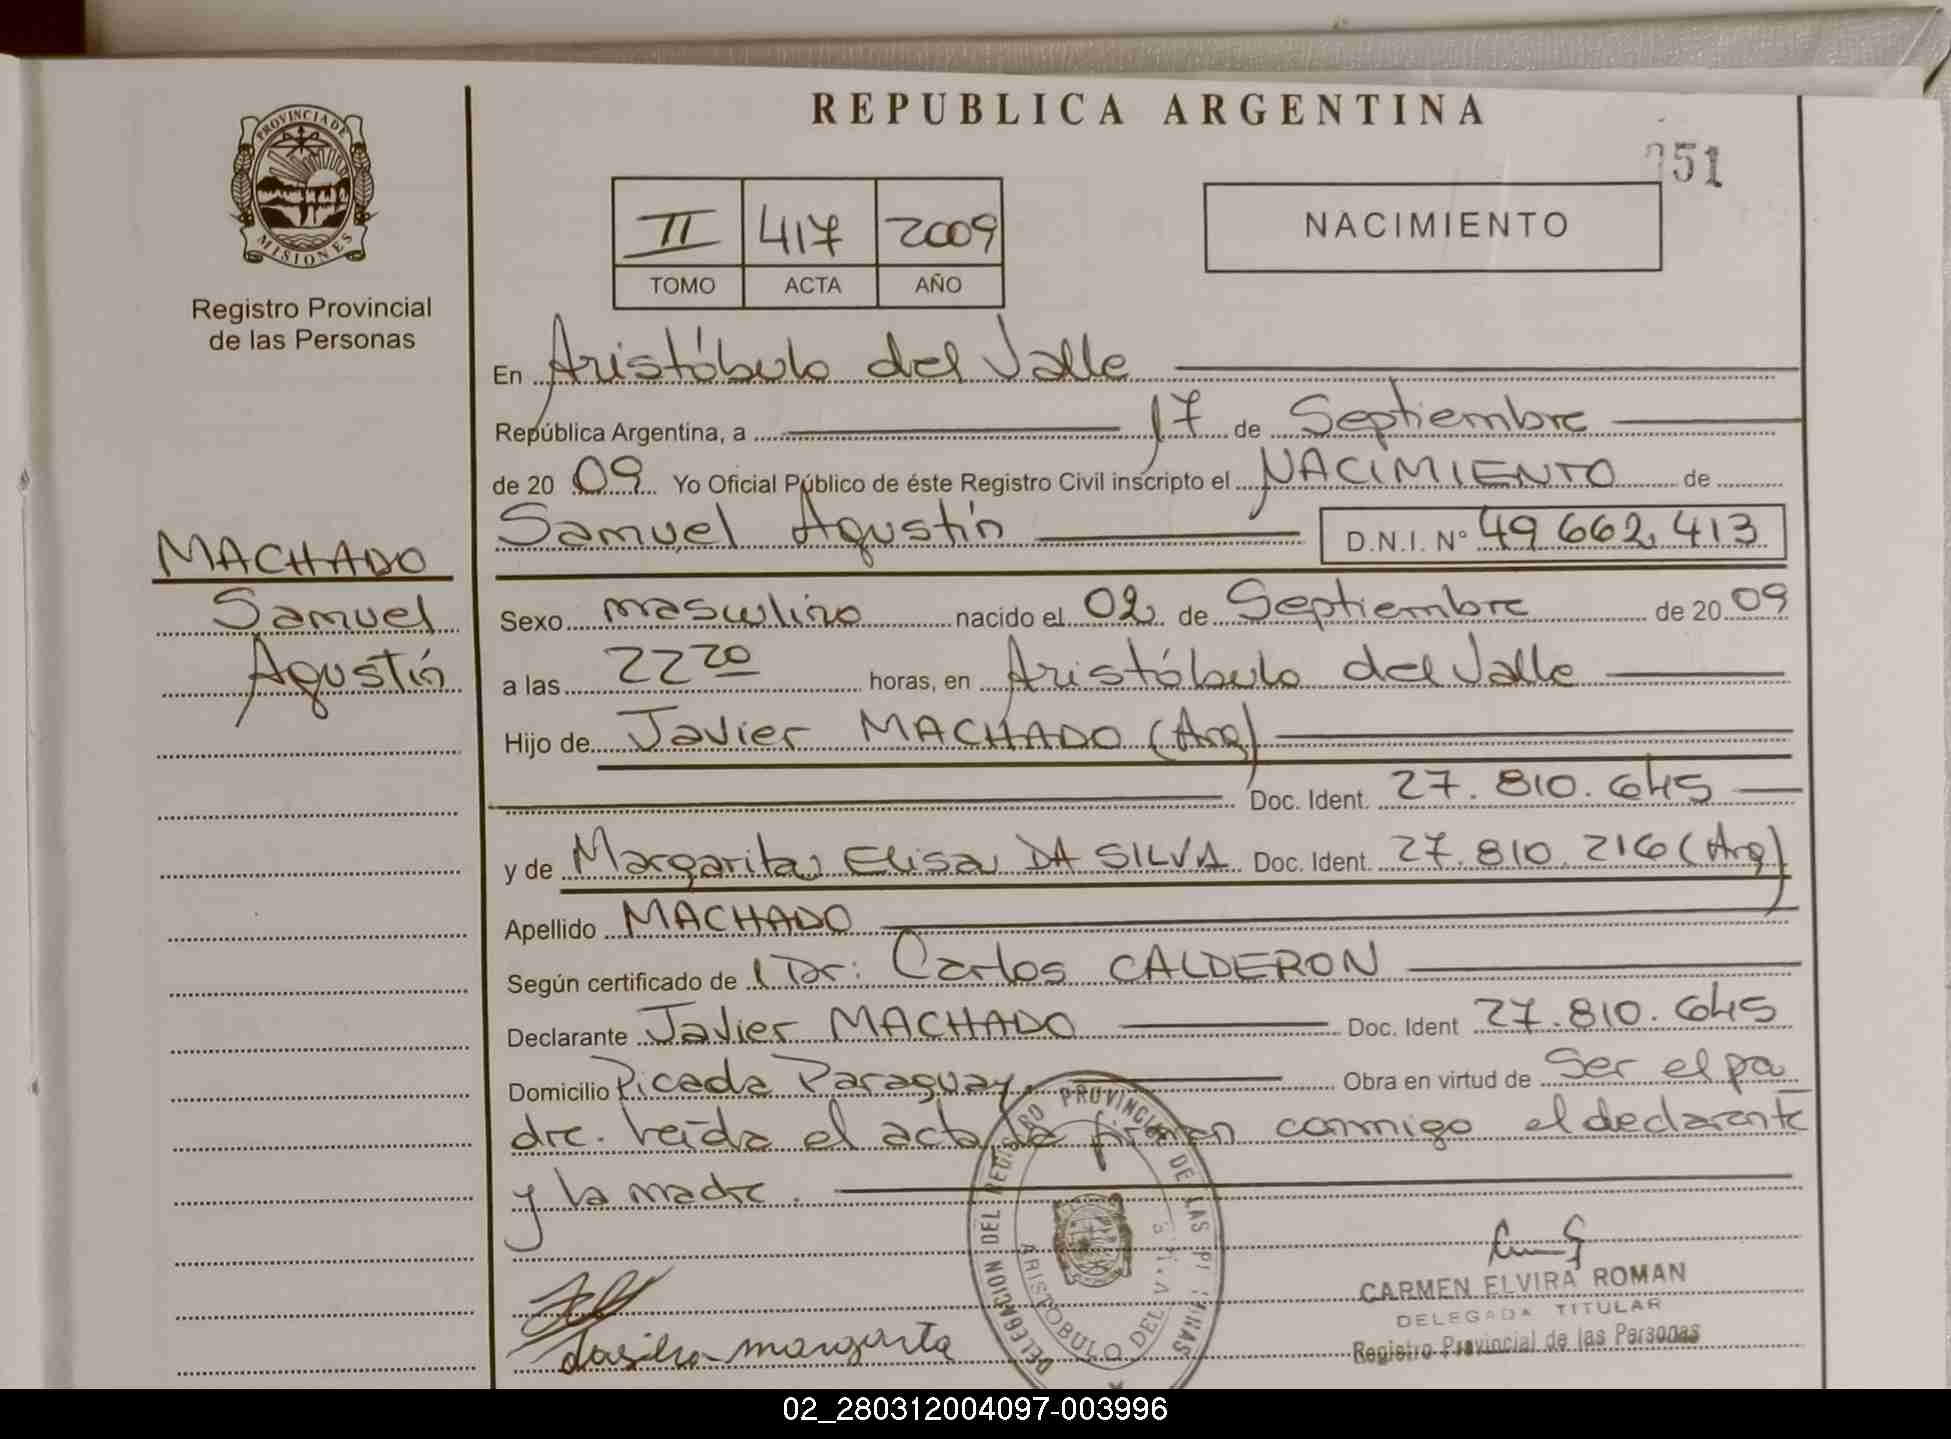 REPUBLICA ARGENTINA
51
PROVINCIA DE
MISIONES
Registro Provincial
de las Personas
II 417 2009
TOMO ACTA AÑO
NACIMIENTO
En Aristóbulo del Valle
República Argentina, a 17 de Septiembre
de 20 09 Yo Oficial Público de éste Registro Civil inscripto el NACIMIENTO de
Samuel Agustín D.N.I. Nº 49662.413
MACHADO
Samuel
Agustín
Sexo masculino nacido el 02 de Septiembre de 20 09
a las 22 20 horas, en Aristóbulo del Valle
Hijo de Javier MACHADO (Arg)
Doc. Ident. 27.810.645
y de Margarita Elisa DA SILVA Doc. Ident. 27.810.216 (Arg)
Apellido MACHADO
Según certificado de l Dr: Carlos CALDERON
Declarante Javier MACHADO Doc. Ident 27.810.645
Domicilio Picada Paraguay. Obra en virtud de Ser el pa
dre. Leída el acta la firman conmigo el declarante
y la madre.
DELEGACION DEL REGISTRO PROVINCIAL DE LAS
ARISTOBULO DEL
CARMEN ELVIRA ROMAN
DELEGADA TITULAR
Registro Provincial de las Personas
dasilva margarita
02_280312004097-003996